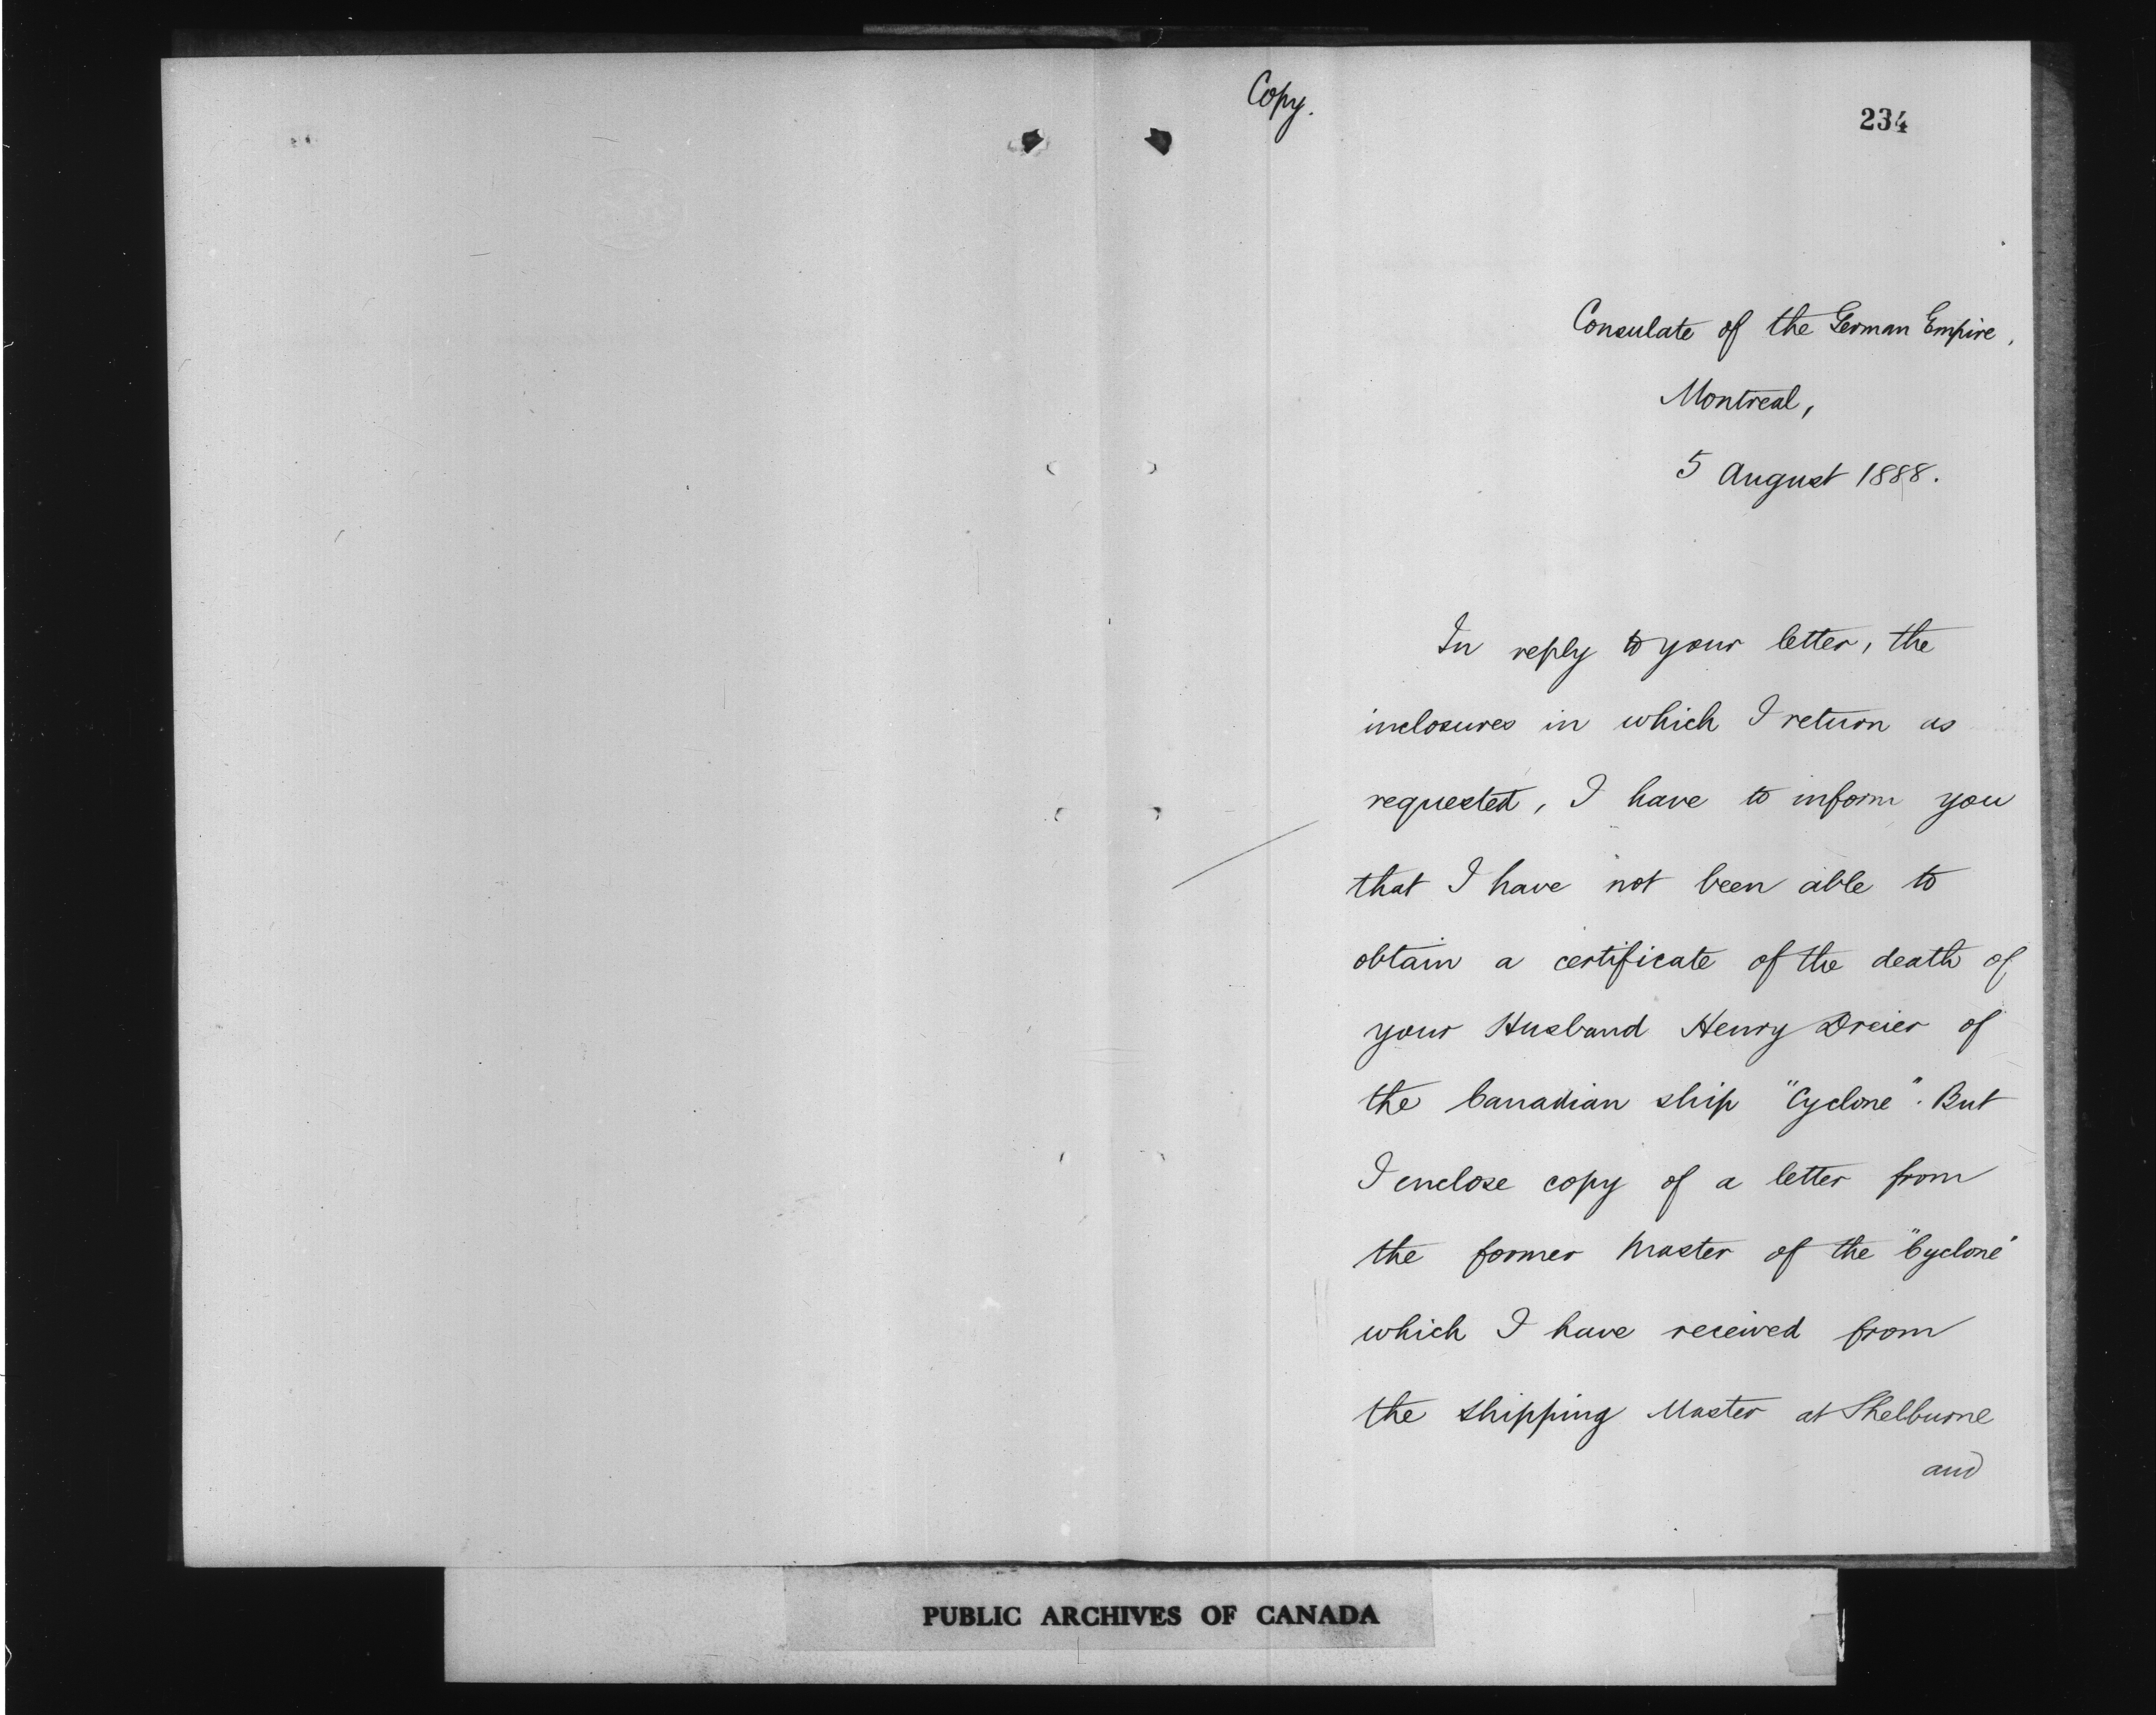 Copy.
234
Consulate of the German Empire,
Montreal,
5 August 1888.
In reply to your letter, the
inclosures in which I return as
requested, I have to inform you
that I have not been able to
obtain a certificate of the death of
your Husband Henry Dreier of
the Canadian ship "Cyclone". But
I enclose copy of a letter from
the former Master of the "Cyclone"
which I have received from
the Shipping Master at Shelburne
and
PUBLIC ARCHIVES OF CANADA